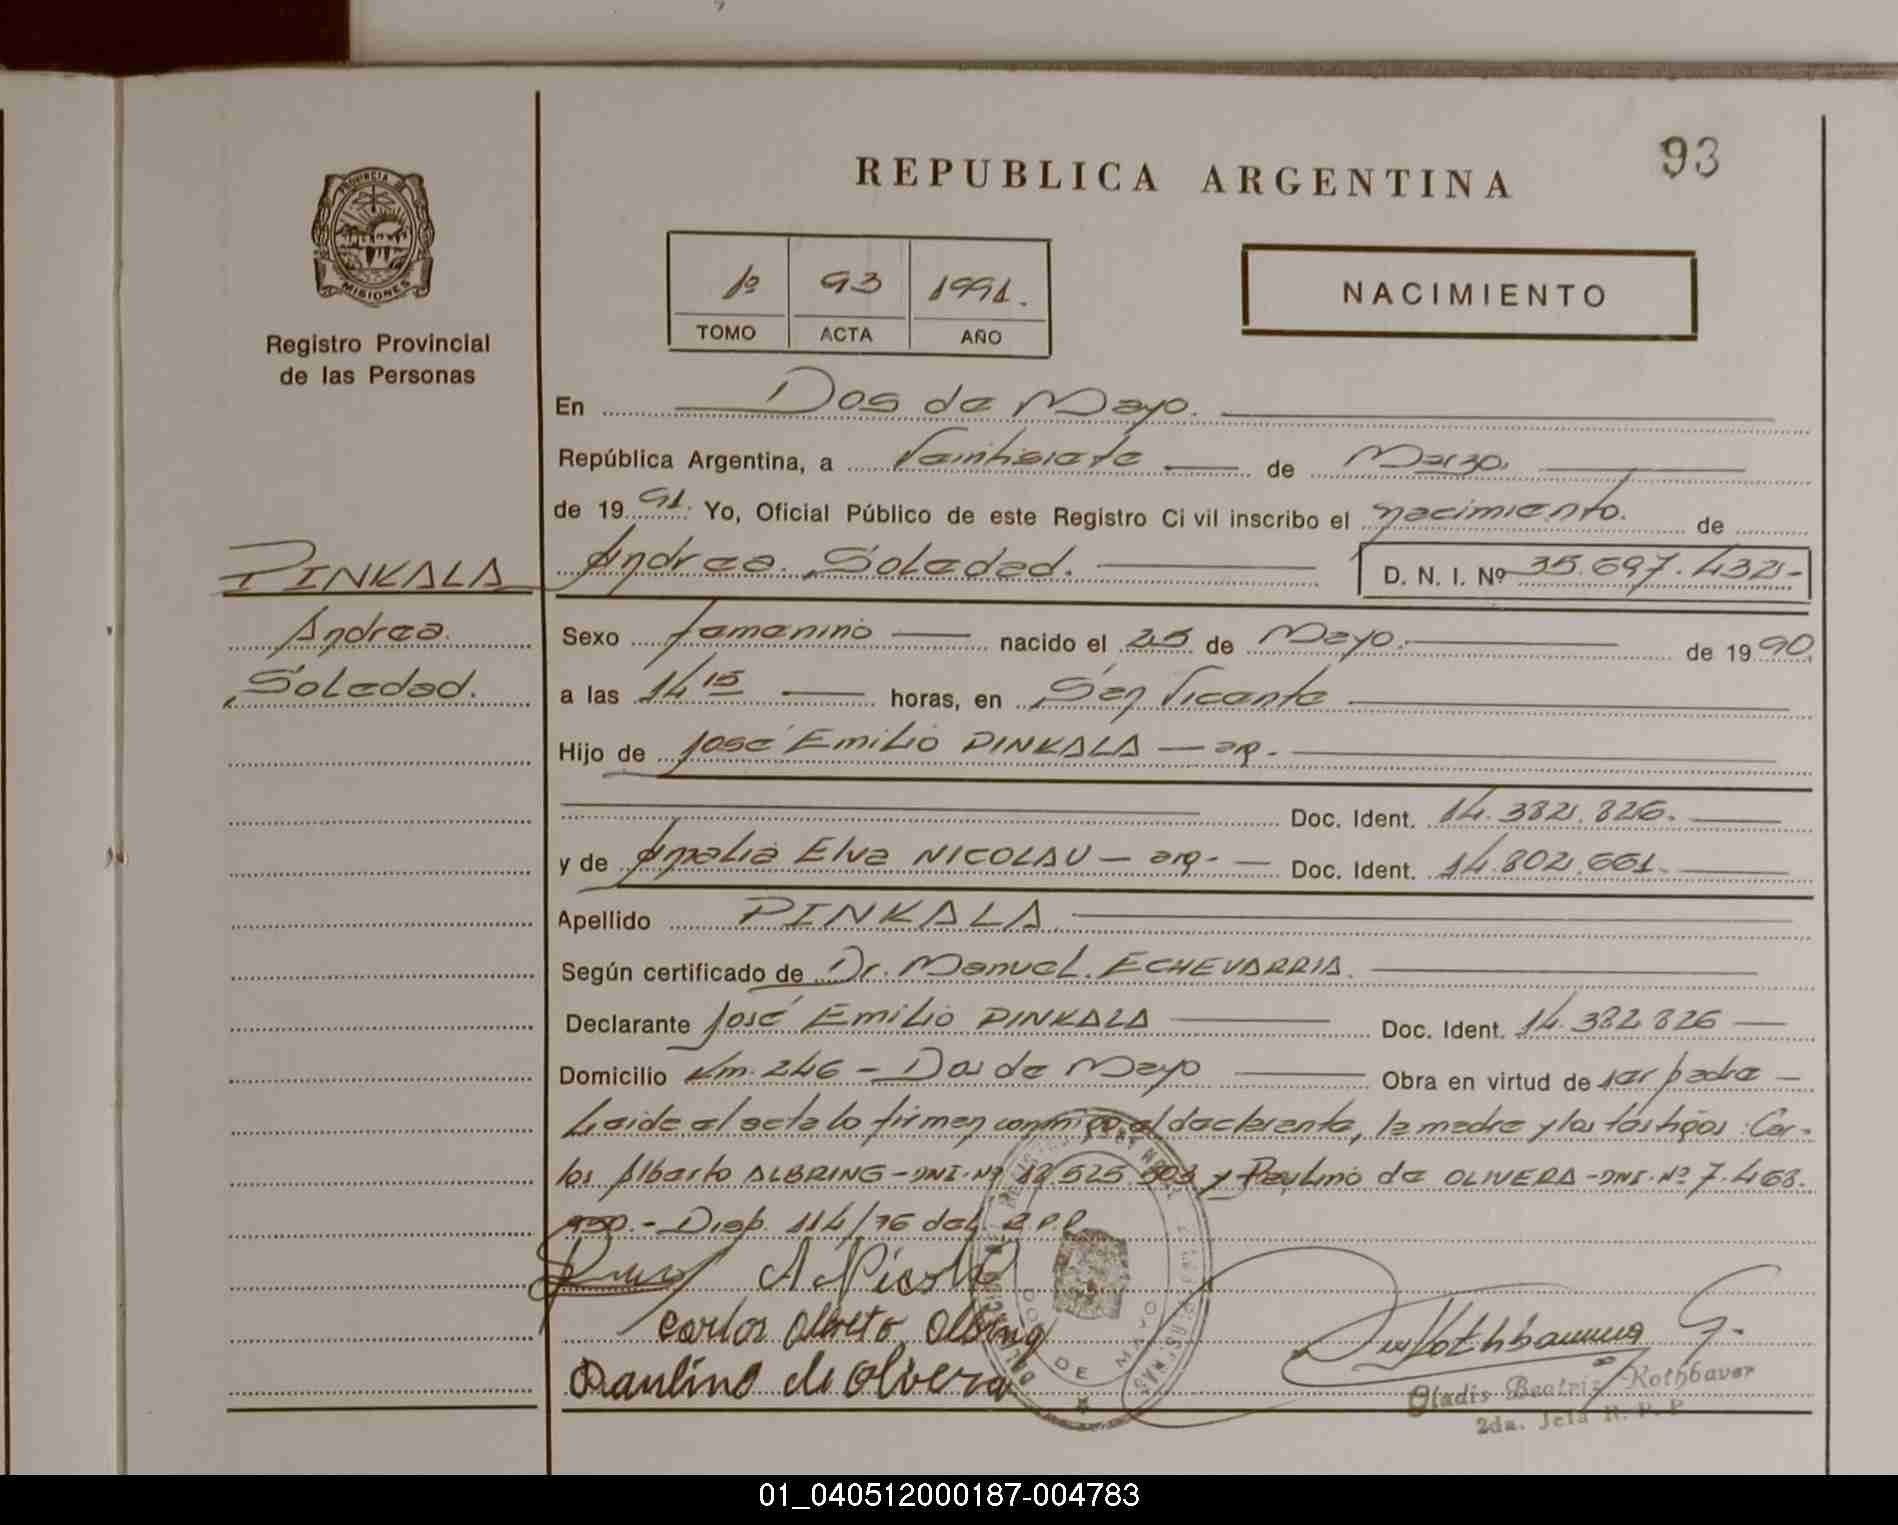 93
REPUBLICA ARGENTINA
PROVINCIA DE
MISIONES
Registro Provincial
de las Personas
1º 93 1991.
TOMO ACTA AÑO
NACIMIENTO
En Dos de Mayo.
República Argentina, a Veintisiete de Marzo.
de 19 91. Yo, Oficial Público de este Registro Civil inscribo el nacimiento. de
PINKALA Andrea Soledad. D. N. I. Nº 35.697.432-
Andrea
Soledad.
Sexo femenino nacido el 25 de Mayo. de 19 90
a las 14 15 horas, en San Vicente
Hijo de José Emilio PINKALA — arg.
Doc. Ident. 14.382.826.
y de Amalia Elva NICOLAU — arg. — Doc. Ident. 14.802.661.
Apellido PINKALA
Según certificado de Dr. Manuel ECHEVARRIA.
Declarante José Emilio PINKALA Doc. Ident. 14.382.826
Domicilio Km. 246 - Dos de Mayo Obra en virtud de ser padre —
Leída el acta lo firman conmigo el declarante, la madre y los testigos: Car-
los Alberto ALBRING - DNI. Nº 12.525.903 y Paulino de OLIVERA - DNI. Nº 7.468.
930.- Disp. 114/76 del R.P.P.
A Nicolau
Carlos Alberto Albring
Paulino de Olivera
DOS DE MAYO
Rothbauer G.
Gladis Beatriz Rothbaver
2da. Jefa R. P. P.
01_040512000187-004783